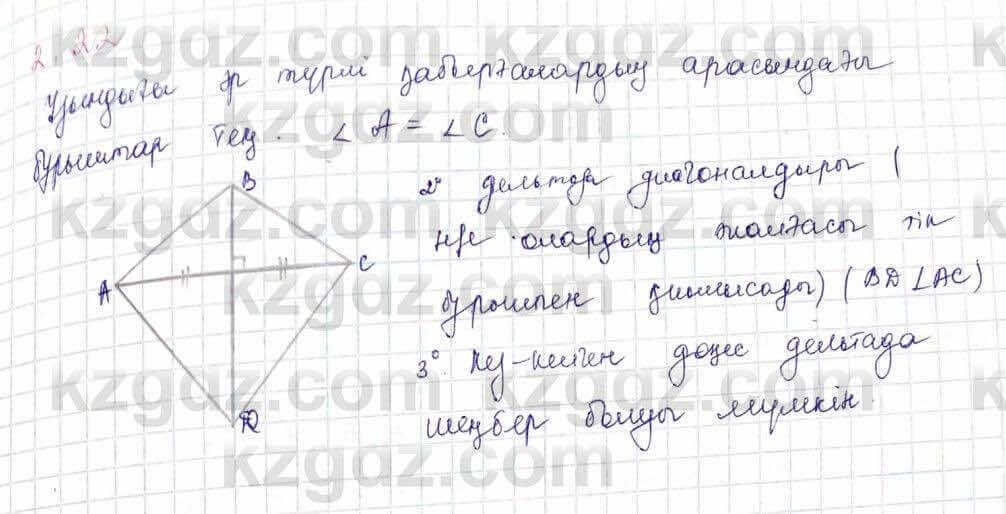 2.22
Ұзындығы әр түрлі қабырғалардың арасындағы
бұрыштар тең. ∠A = ∠C.
B
A
C
D
2° дельтоид диагоналдыры (
н/е олардың жалғасы тік
бұрышпен қиылысады) (BD ⊥ AC)
3° Кез-келген дөңес дельтада
шеңбер болуы мүмкін.
kzgdz.com